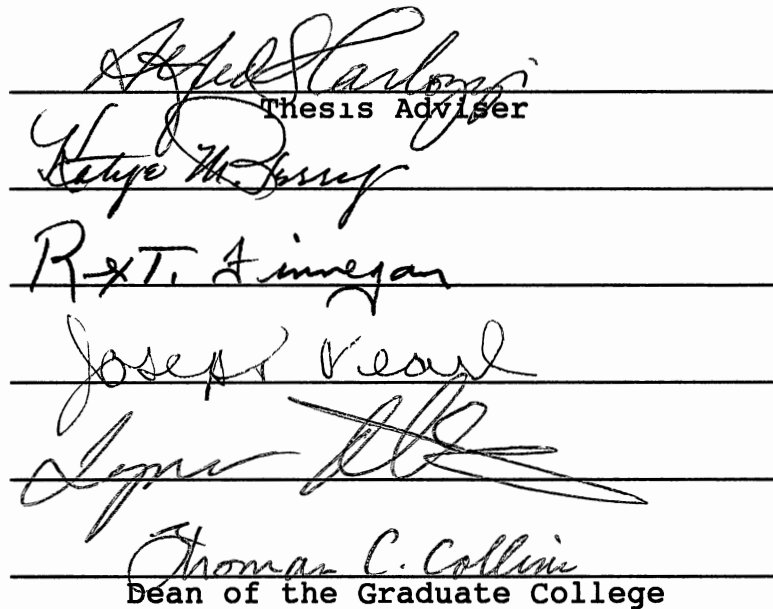 Alfred Carlozzi
Thesis Adviser
Katye M. Perry
Rex T. Finnegan
Joseph Pearl
Thomas C. Collins
Dean of the Graduate College